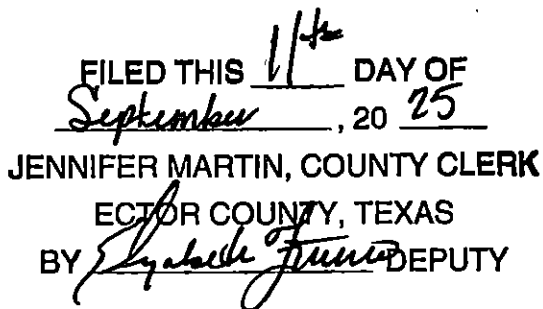 FILED THIS 11th DAY OF
September, 20 25
JENNIFER MARTIN, COUNTY CLERK
ECTOR COUNTY, TEXAS
BY DEPUTY